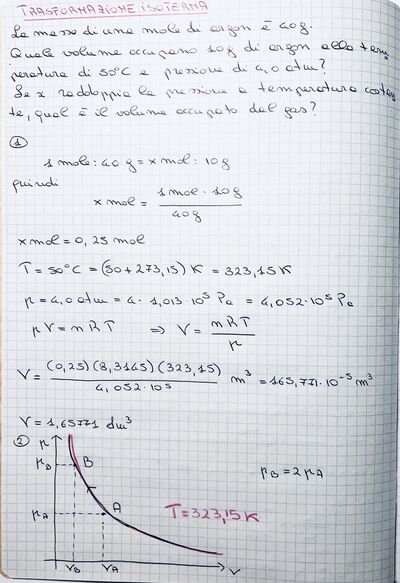 TRASFORMAZIONE ISOTERMA
La massa di una mole di argon è 40g.
Quale volume occupano 10g di argon alla tem
peratura di 50°C e pressione di 4,0 atm?
Se si raddoppia la pressione a temperatura costan
te, qual è il volume occupato dal gas?
①
1 mole : 40 g = x mol : 10g
quindi
x mol = 1 mol · 10g / 40g
x mol = 0,25 mol
T = 50°C = (50 + 273,15) K = 323,15 K
p = 4,0 atm = 4 · 1,013 · 10⁵ Pa = 4,052 · 10⁵ Pa
pV = nRT ⇒ V = nRT / p
V = (0,25)(8,3145)(323,15) / 4,052 · 10⁵ m³ = 165,771 · 10⁻⁵ m³
V = 1,65771 dm³
②
p
pB
B
pB = 2pA
pA
A
T = 323,15 K
VB
VA
V